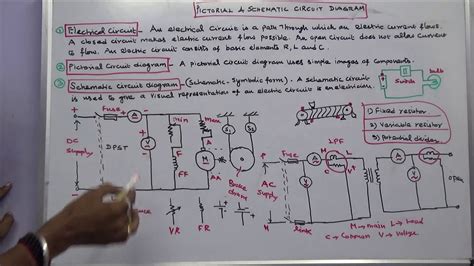 PICTORIAL & SCHEMATIC CIRCUIT DIAGRAM
① Electrical Circuit - An electrical circuit is a path through which an electric current flows.
A closed circuit makes electric current flow possible. An open circuit does not allow current
to flow. An electric circuit consists of basic elements R, L and C.
② Pictorial circuit diagram - A pictorial circuit diagram uses simple images of components.
③ Schematic circuit diagram - (Schematic - Symbolic form). A schematic circuit
is used to give a visual representation of an electric circuit to an electrician.
bulb
Switch
1) Fixed resistor
2) Variable resistor
3) Potential divider
Fuse
A
V
DC
Supply
DPST
min
F
FF
max
A
M
AA
S1
S2
Brake
drum
LPF
Fuse
A
M
L
C
V
V
AC
Supply
link
A
V
open
VR
FR
M → main L → Load
C → Common V → Voltage